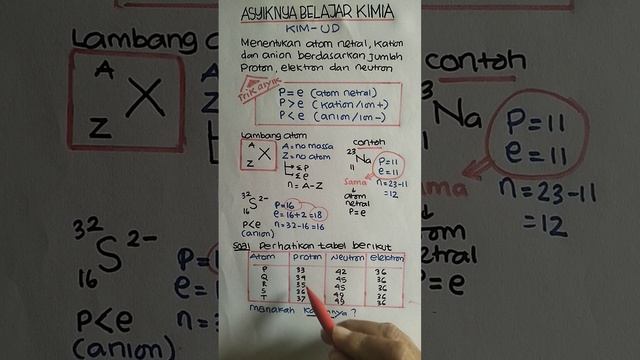 ASYIKNYA BELAJAR KIMIA
KIM-UD
Menentukan atom netral, kation
dan anion berdasarkan jumlah
Proton, elektron dan neutron
Trik asyik
P = e (atom netral)
P > e (kation/ion +)
P < e (anion/ion -)
Lambang atom
A
X
Z
A = no massa
Z = no atom
Σp
Σe
n = A - Z
contoh
23
Na
11
P = 11
e = 11
n = 23-11
= 12
Sama
atom
netral
P = e
32
S 2-
16
P = 16
e = 16 + 2 = 18
n = 32 - 16 = 16
P < e
(anion)
Soal Perhatikan tabel berikut
Atom Proton Neutron Elektron
P 33 42 36
Q 34 45 36
R 35 45 36
S 36 49 36
T 37 49 36
manakah
Lambang
A
X
Z
32
S 2-
16
P < e
(anion)
contoh
Na
P = 11
e = 11
n = 23-11
= 12